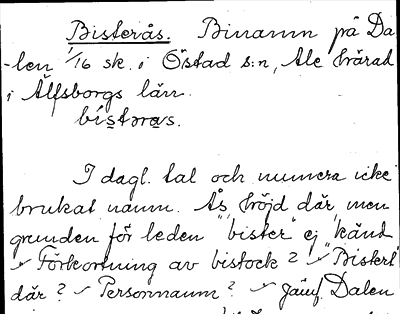 Bisterås. Binamn på Da
-len 1/16 sk. i Östad s:n, Ale härad
i Älfsborgs län.
bístəras.
I dagl. tal och numera icke
brukat namn. Ås, höjd där, men
grunden för leden "bister" ej känd
Förkortning av bistock? "Bistert"
där? Personnamn? Jämf. Dalen